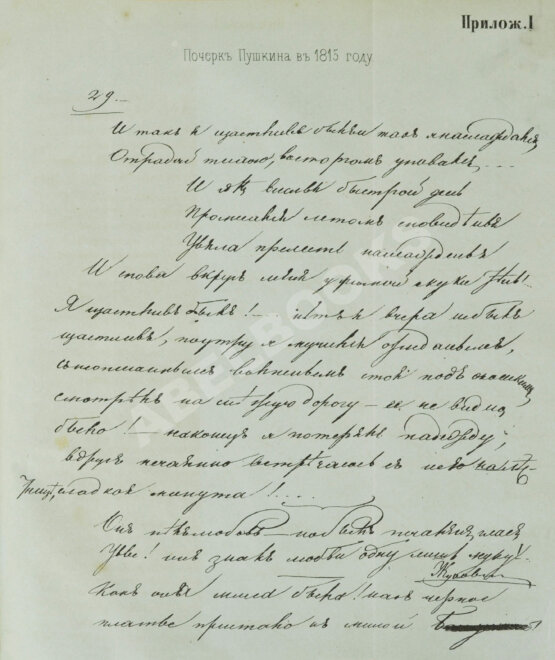 Прилож. I
Почеркъ Пушкина въ 1815 году
29. —
И такъ я щастливъ былъ, и такъ я наслаждался,
Отрадой тихою, восторгомъ упивался....
И гдѣ веселья быстрой день
Промчался летомъ сновидѣнья
Увяла прелесть наслажденья
И снова вкругъ меня угрюмой скуки тѣнь!..
Я щастливъ былъ!... нѣтъ я вчера не былъ
щастливъ, поутру я мучился ожиданьемъ,
съ неописаннымъ волненьемъ стоя подъ окошкомъ,
смотрѣлъ на снѣжную дорогу — ее не видно
было! — наконецъ я потерялъ надежду,
вдругъ нечаянно встрѣчаюсь съ нею на лѣс-
тницѣ, сладкая минута!....
Онъ пѣлъ любовь — но былъ печаленъ гласъ
Увы! онъ зналъ любви одну лишь муку!
Жуковскій
Какъ она мила была! какъ черное
платье пристало къ милой
ABE-BOOKS